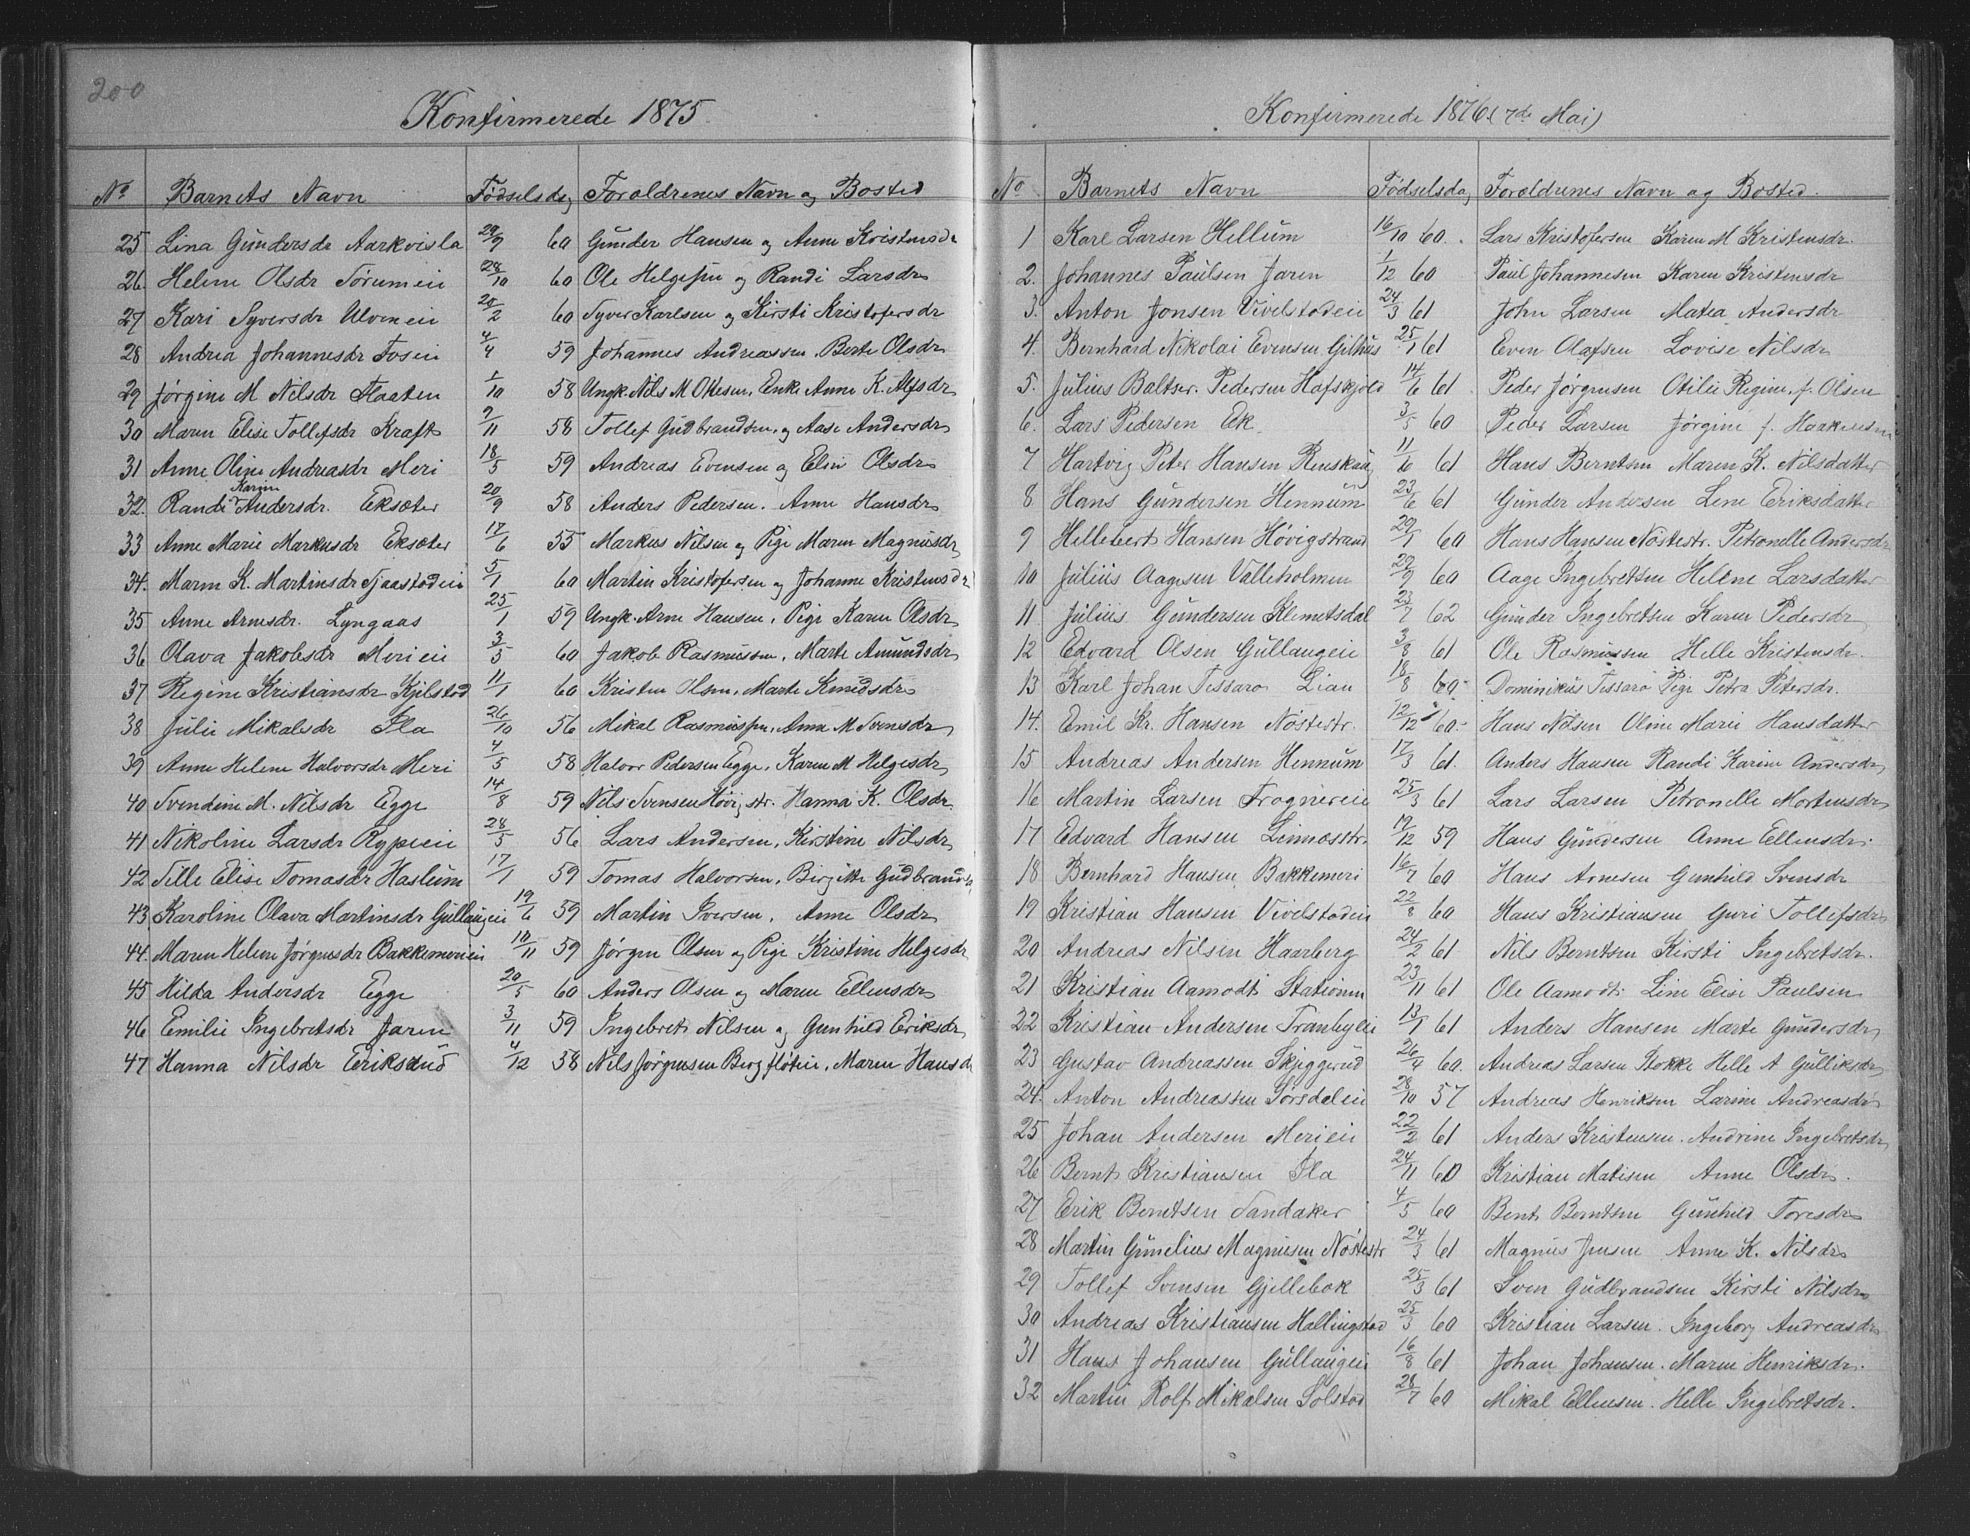 200
Konfirmerede 1875.
No Barnets Navn Fødselsdag Foroldrenes Navn og Bosted
25 Lina Gundersdr Aarkvisla 29/9 60 Gunder Hansen og Anne Kristensdr
26. Helene Olsdr Sørumeie 28/10 60 Ole Helgesen og Randi Larsdr
27 Kari Syversdr Ulvenei 20/2 60 Syver Karlsen og Kirsti Kristofersdr
28 Andrea Johannesdr Foseie 4/4 59 Johannes Andreassen, Berte Olsdr
29 Jørgine M Nilsdr Staaten 1/10 58 Ungk. Nils M Olesen, Enke Anne K. Alfsdr
30 Maren Elise Tollefsdr Kraft 9/11 58 Tollef Gudbrandsen, og Aase Andersdr
31 Anne Oline Andreasdr Meri 18/5 59 Andreas Evensen og Elin Olsdr
32. Randi Karine Andersdr. Eksæter 20/9 58 Anders Pedersen. Anne Hansdr
33 Anne Marie Markusdr Eksæter 17/6 55 Markus Nilsen og Pige Maren Magnusdr
34. Maren K. Martinsdr Tjaastadeie 5/1 60 Martin Kristofersen og Johanne Kristensdr
35 Anne Arnesdr. Lyngaas 25/1 59 Ungk. Arne Hansen, Pige Karen Olsdr
36 Olava Jakobsdr Merieie 3/5 60 Jakob Rasmussen, Marte Amundsdr
37 Regine Kristiansdr Kjilstad 11/1 60 Kristen Olsen, Marte Knudsdr
38 Julie Mikalsdr Fla 26/10 56 Mikal Rasmussen, Anne M Svensdr
39 Anne Helene Halvorsdr Meri 4/5 58 Halvor Pedersen Egge, Karen M Helgesdr
40 Svendine M. Nilsdr Egge 14/8 59 Nils Svensen Høvigstr. Hanna K. Olsdr
41 Nikoline Larsdr Rypeeie 28/5 56 Lars Andersen, Kirstine Nilsdr
42 Tille Elise Tomasdr Haslum 17/1 59 Tomas Halvorsen, Birgitte Gudbrandsd
43 Karoline Olava Martinsdr Gullaugeie 19/6 59 Martin Iversen, Anne Olsdr
44 Maren Helene Jørgensdr Bakkemerieie 10/11 59 Jørgen Olsen og Pige Kristine Helgesdr
45 Hilda Andersdr Egge 20/5 60 Anders Olsen og Maren Ellensdr
46 Emilie Ingebretsdr Jaren 3/11 59 Ingebret Nilsen og Gunhild Eriksdr
47 Hanna Nilsdr Eriksrud 4/12 58 Nils Jørgensen Bergfløteie, Maren Hansdr
Konfirmerede 1876 (7de Mai)
No. Barnets Navn Fødselsdag Foroldrenes Navn og Bosted.
1 Karl Larsen Hellum 16/10 60. Lars Kristofersen Karen M Kristensdr.
2. Johannes Paulsen Jaren 1/12 60 Paul Johannesen Karen Kristensdr
3. Anton Jonsen Vivelstadeie 24/3 61 John Larsen Matea Andersdr
4. Bernhard Nikolai Evensen Gilhus 25/1 61 Even Olafsen Lovise Nilsdr
5. Julius Baltser. Pedersen Hafskjold 14/6 61. Peder Jørgensen Otilie Regine f. Olsen
6. Lars Pedersen Ek 3/5 60 Peder Larsen Jørgine f. Haakensen
7 Hartvig Peter Hansen Renskaug 11/6 61 Hans Berntsen Maren K. Nilsdatter
8 Hans Gundersen Hennum 23/6 61 Gunder Andersen Lene Eriksdatter
9 Hellebert Hansen Høvigstrand 29/1 60 Hans Hansen Nøstestr. Petronelle Andersdr
10 Julius Aagesen Valleholmen 29/9 60 Aage Ingebretsen Helene Larsdatter
11 Julius Gundersen Klemetsdal 23/7 62 Gunder Ingebretsen Karen Pedersdr
12 Edvard Olsen Gullaugeie 3/8 61 Ole Rasmussen Helle Kristensdr.
13 Karl Johan Tessaro Lian 18/8 60. Dominikus Tessaro Pige Petra Petersdr.
14. Emil Kr. Hansen Nøstestr. 12/12 60. Hans Nilsen Oline Marie Hansdatter
15 Andreas Andersen Hennum 17/3 61. Anders Hansen Randi Karine Andersdr
16 Martin Larsen Frognereie 25/3 61 Lars Larsen Petronelle Mortensdr
17 Edvard Hansen Linnæsstr. 19/12 59 Hans Gundersen Anne Ellensdr.
18 Bernhard Hansen Bakkemeri 16/7 60 Hans Arnesen Gunhild Svensdr
19 Kristian Hansen Vivelstadeie 22/8 60 Hans Kristiansen Guri Tollefsdr
20 Andreas Nilsen Haarberg 24/2 61 Nils Berntsen Kirsti Ingebretsdr.
21 Kristian Aamodt Stationen 23/11 61 Ole Aamodt Line Elise Paulsen
22 Kristian Andersen Tranbyeie 13/1 61 Anders Hansen Marte Gundersdr
23 Gustav Andreassen Skjeggerud 26/4 60. Andreas Larsen Stokke Helle A Gulliksdr
24. Anton Andreassen Sørsdaleie 28/10 57 Andreas Henriksen Larine Andreasdr
25 Johan Andersen Merieie 22/2 61 Anders Kristensen. Andrine Ingebretsdr
26 Bernt Kristiansen Fla 24/11 60 Kristian Matisen Anne Olsdr.
27 Erik Berntsen Sandaker 4/5 60 Bent Berntsen Gunhild Toresdr
28 Martin Gunelius Magnusen Nøstestr 24/3 61 Magnus Jensen Anne K. Nilsdr
29 Tollef Svensen Gjellebek 25/3 61 Sven Gudbrandsen Kirsti Nilsdr
30 Andreas Kristiansen Hallingstad 25/3 60 Kristian Larsen. Ingeborg Andreasdr
31 Hans Johansen Gullaugeie 16/8 61 Johan Johansen. Maren Henriksdr.
32 Martin Rolf Mikalsen Solstad 28/7 60 Mikal Ellensen. Helle Ingebretsdr.